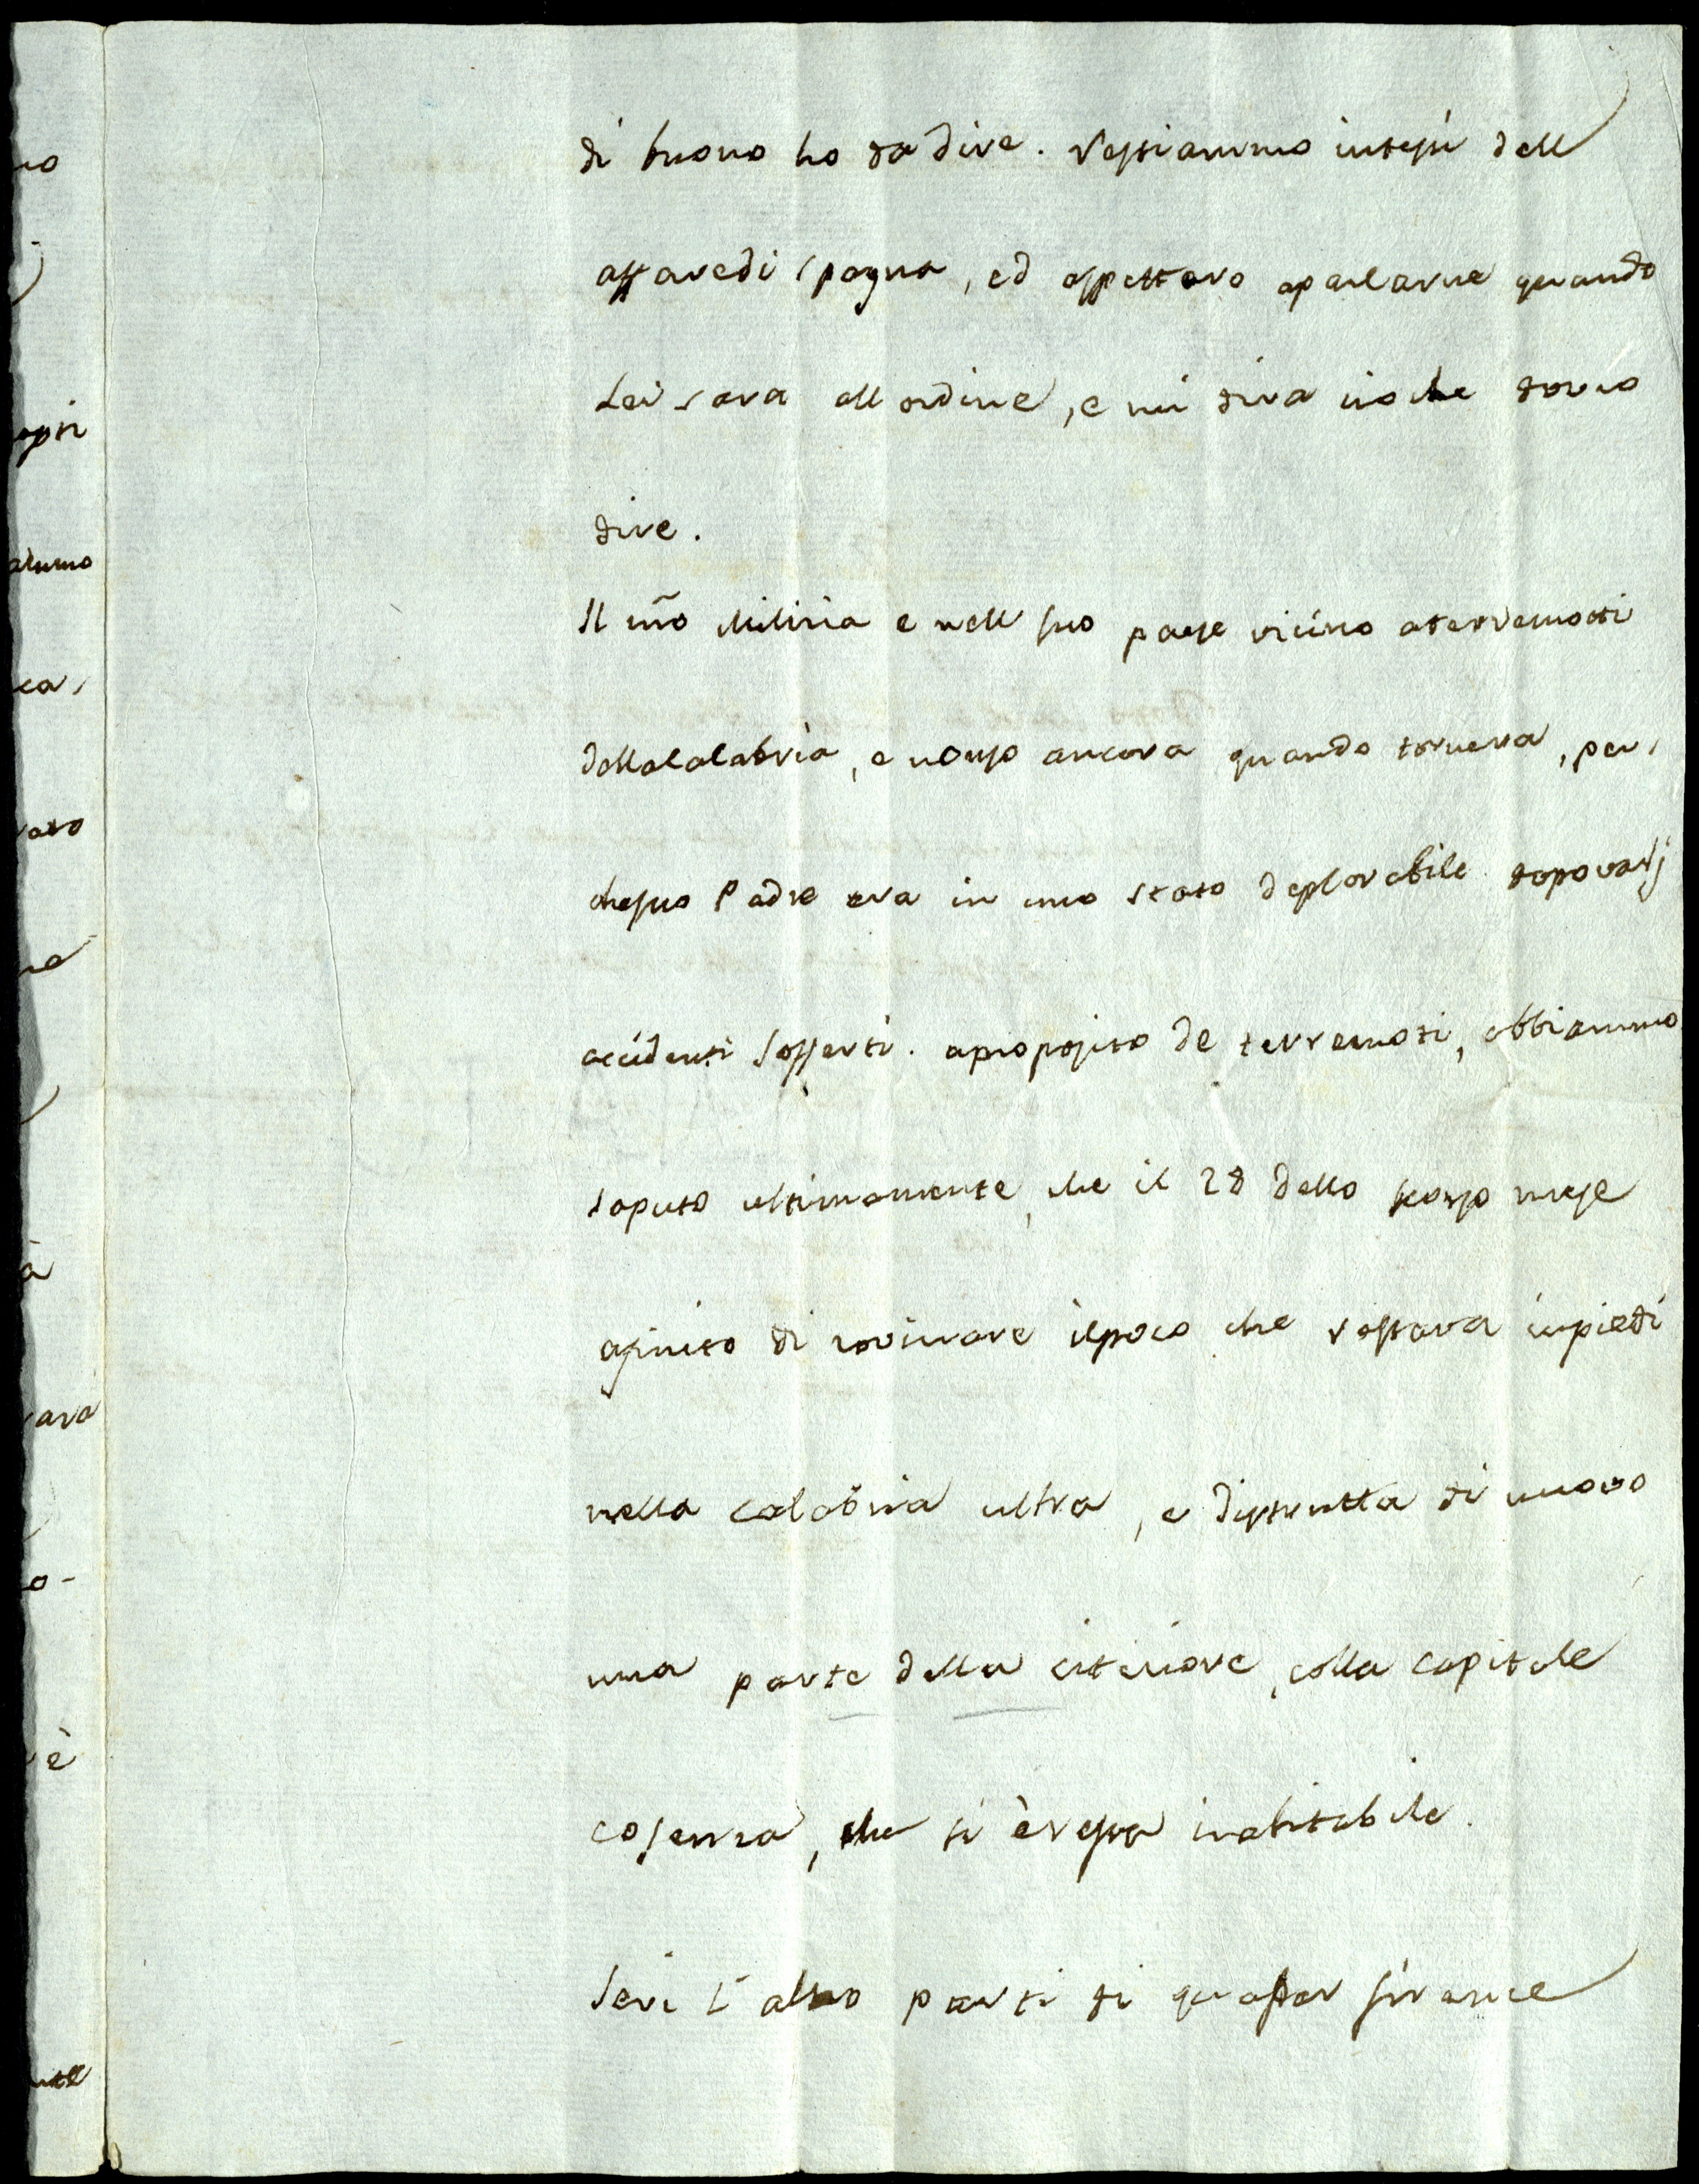 di buono ho da dire. restiammo intesi dell
affaredi spagna, ed aspettero aparlarne quando
Lei sara all ordine, e mi dira cioche dovro
dire.
Il nr̃o Milizia e nell suo paese vicino aterremotti
dellacalabria, e nonso ancora quando tornera, per,
chesuo Padre era in uno stato deplorabile dopovarj
accidenti sofferti. apropojito de terremoti, abbiammo
saputo ultimamente, che il 28 dello scorso mese
afinito di rovinare ilpoco che restava inpiedi
nella calabria ultra, e distrutta di nuovo
una parte della citeriore, colla capitale
cosenza, che si èresa inabitabile.
Ieri l altro parti di qua per firenze
no
opri
ca,
rato
ne
à
rara
o-
è